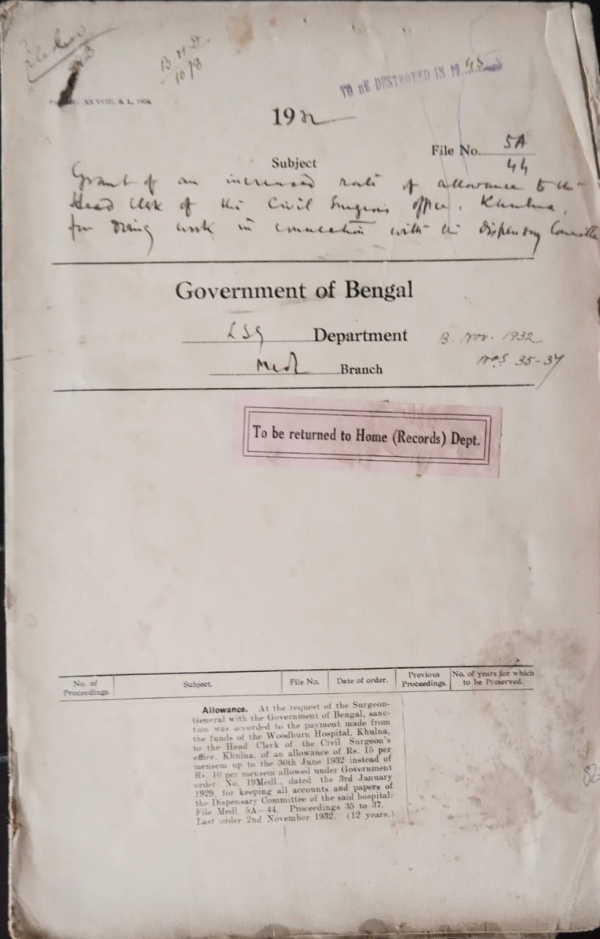 B M
10/8
TO BE DESTROYED IN 1945
1932
File No. 5A
44
Subject
Grant of an increased rate of allowance to the
Head Clerk of the Civil Surgeon's office, Khulna,
for doing work in connection with the Dispensary Committee
Government of Bengal
LSG Department
B. Nov. 1932
Medl Branch
Nos 35-37
To be returned to Home (Records) Dept.
No. of Proceedings. Subject. File No. Date of order. Previous Proceedings. No. of years for which to be Preserved.
Allowance. At the request of the Surgeon-
General with the Government of Bengal, sanc-
tion was accorded to the payment made from
the funds of the Woodburn Hospital, Khulna,
to the Head Clerk of the Civil Surgeon's
office, Khulna, of an allowance of Rs. 15 per
mensem up to the 30th June 1932 instead of
Rs. 10 per mensem allowed under Government
order No. 19Medl., dated the 3rd January
1929, for keeping all accounts and papers of
the Dispensary Committee of the said hospital.
File Medl. 5A—44. Proceedings 35 to 37.
Last order 2nd November 1932. (12 years.)